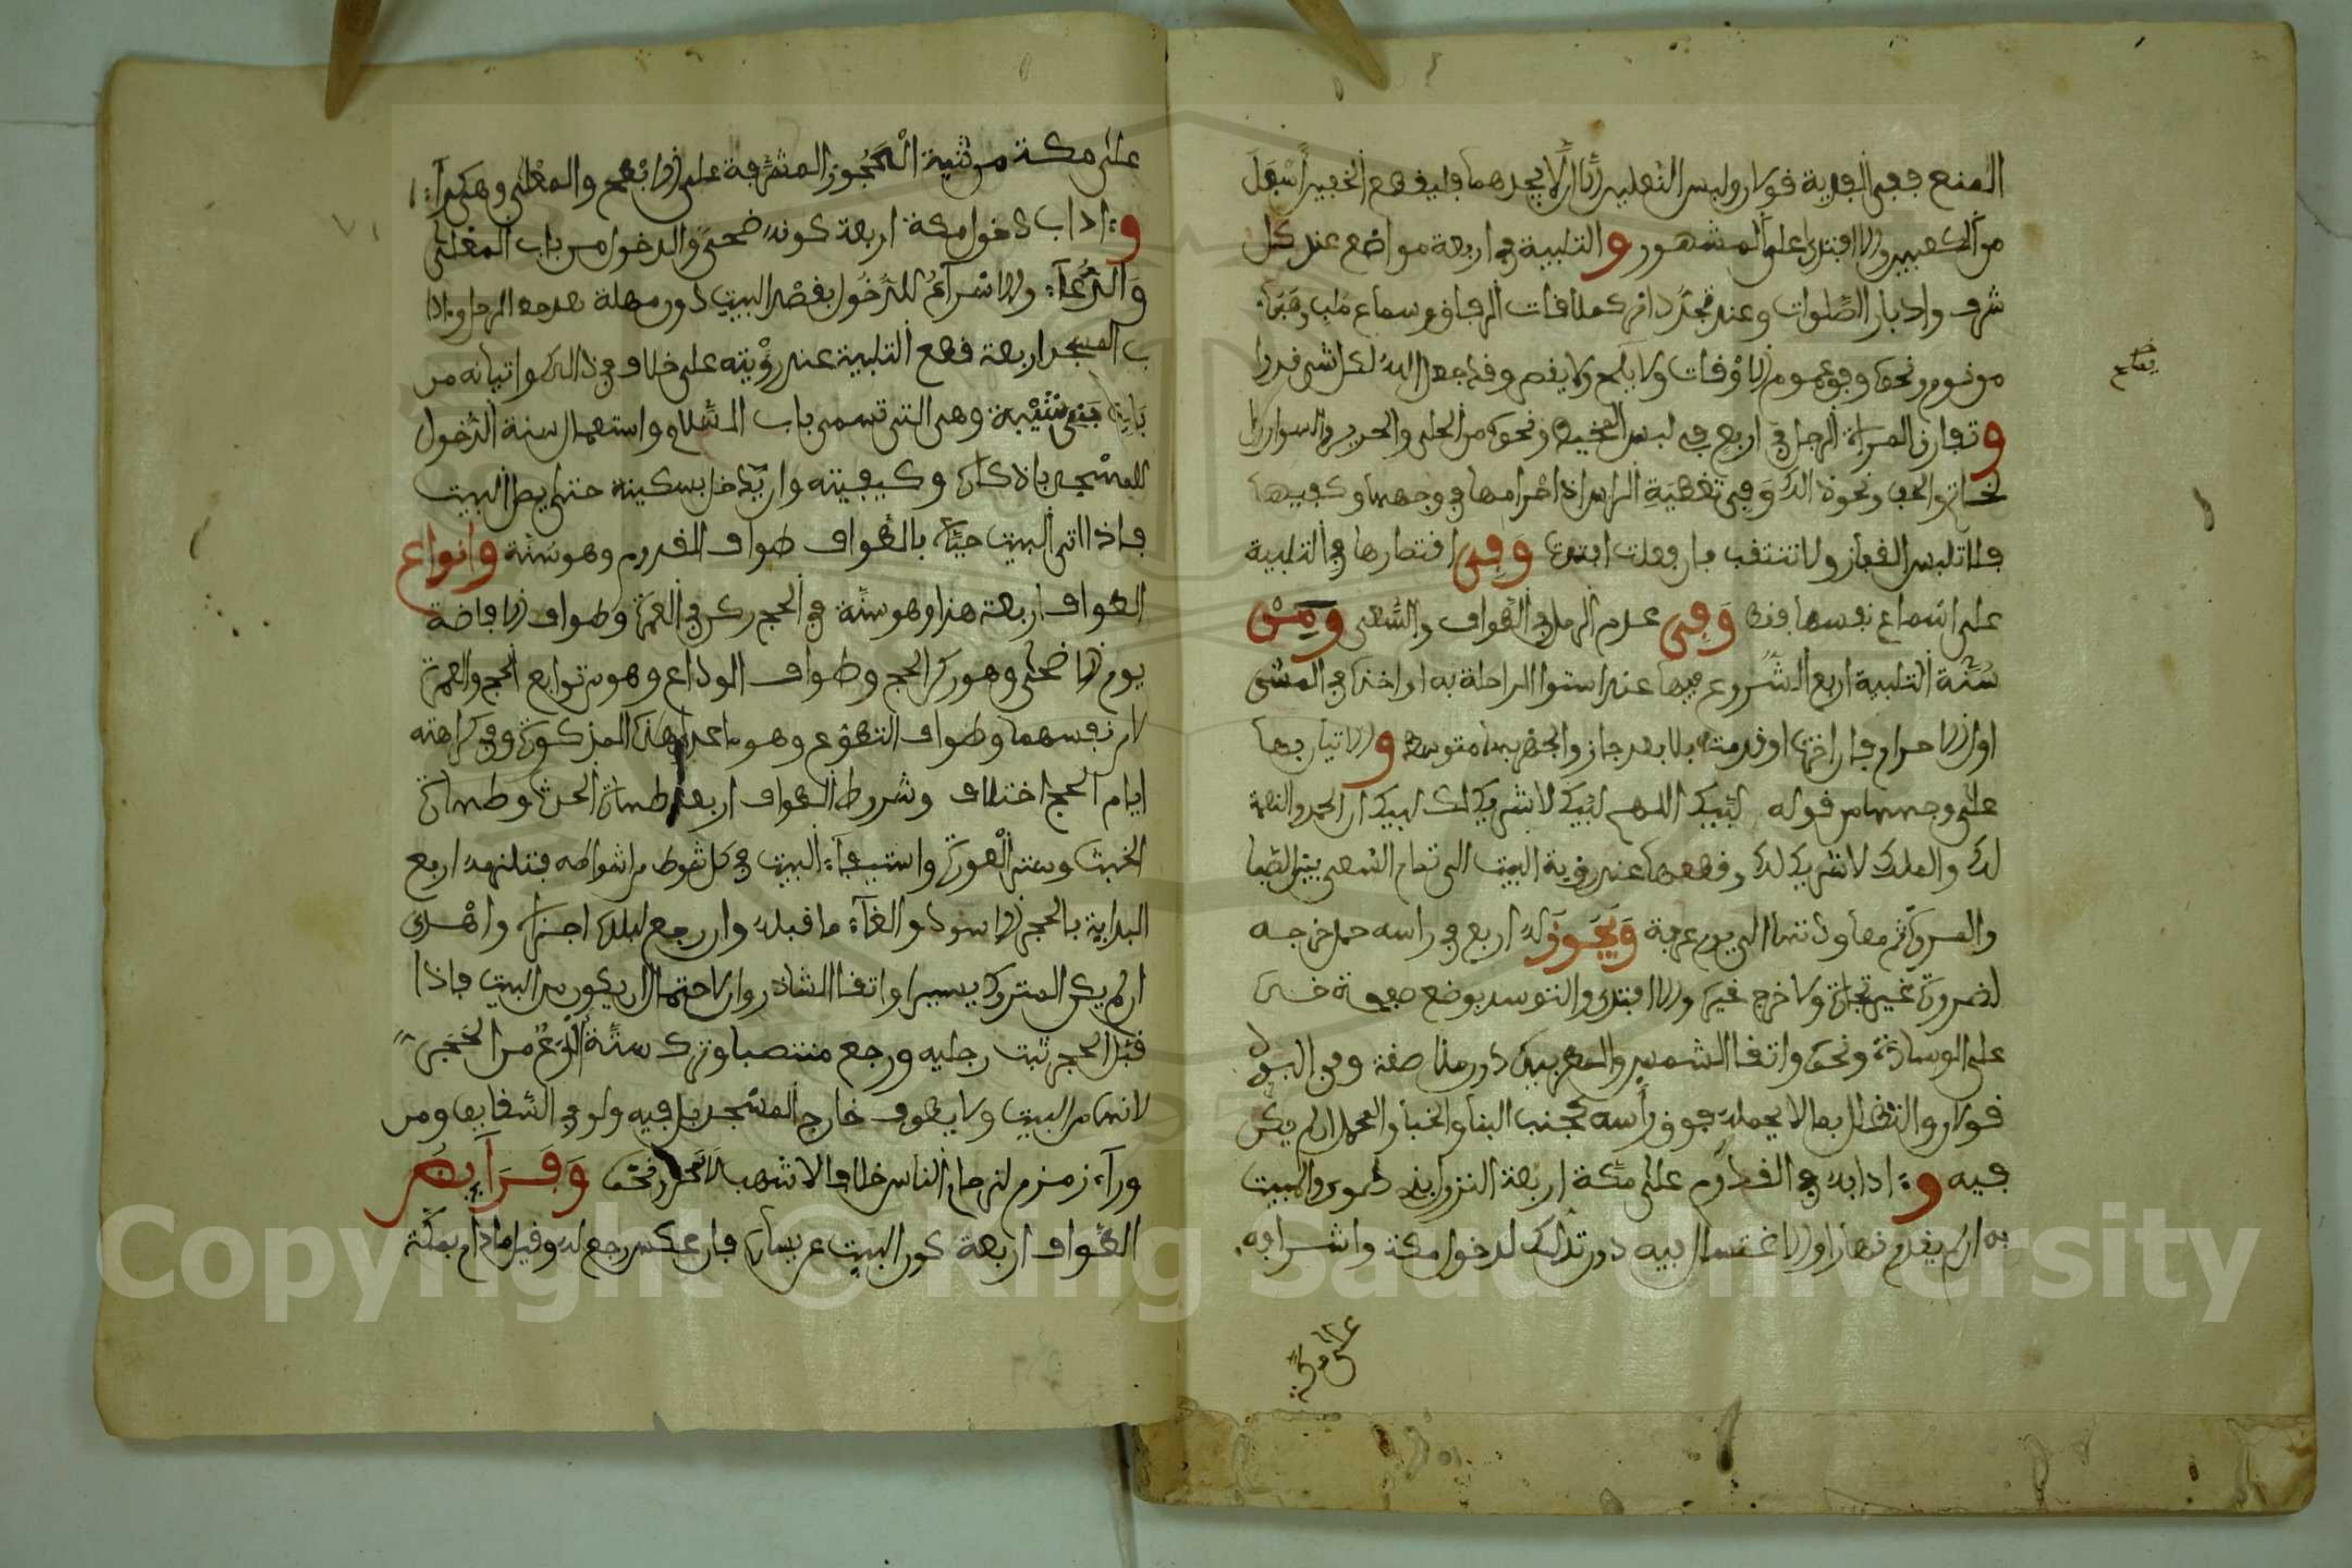 المنع ففي الفدية قولان ولبس النعلين إلا أن لا يجدهما فليقطع الخفين أسفل
من الكعبين والا افتدى على المشهور والتلبية في اربعة مواضع عند كل
شرف وادبار الصلوات وعند تجدد امر كملاقات الرفاق وسماع ملب
من نوم ونحوه وفي عموم الاوقات ولا يلح ولا يقصر وقد جعل الله لكل شيء قدرا
وتفارق المراة الرجل في اربع في لبس المخيط ونحوه من الحلي والحرير والسوار
الخاتم والخف ونحو ذالك وفي تغطية الراس اذ احرامها في وجهها وكفيها
فلا تلبس القفاز ولا تنتقب فان فعلت افتدت وفي اقتصارها في التلبية
على اسماع نفسها فقط وفي عدم الرمل في الطواف والسعي ومن
سنة التلبية اربع الشروع فيها عند استوا الراحلة به او اخذه في المشي
اوان الاحرام فان اخرها او قدمت بلا بعد جاز والجهر بها متوسطا والاتيان بها
على وجهها من قوله لبيك اللهم لبيك لا شريك لك لبيك ان الحمد والنعمة
لك والملك لا شريك لك وقطعها عند روية البيت الى تمام السعي بين الصفا
والمروة ثم معاودتها الى يوم عرفة ويجوز له اربع في راسه حمل خرجه
لضرورة غير تجارة ولا خرج غيره والا افتدى والتوسد بوضع صفحة خده
على الوسادة ونحوه واتقا الشمس والمطر بيده دون ملاصقة وفي البرد
قولان والتظلل بما لا يحمله فوق رأسه كجنب البنا والخبا والمحمل ان لم يكن
فيه وءادابه في القدوم على مكة اربعة النزول بذي طوى والمبيت
به ان لم يقدم نهارا والاغتسال فيه دون تدلك لدخول مكة واشرافه
على مكة من ثنية الحجون المشرفة على الابطح والمعلى وهي كداء
وءاداب دخول مكة اربعة كونه ضحى والدخول من باب المعلى
والدعاء والاسراع للدخول بقصد البيت دون مهلة بعد جعل الرحل وءادا
ب المسجد اربعة قطع التلبية عند رؤيته على خلاف في ذالك واتيانه من
باب بني شيبة وهي التي تسمى باب السلام واستعمال سنة الدخول
للمسجد باذكاره وكيفيته وان يدخل بسكينة حتى يصل البيت
فاذا اتى البيت حياه بالطواف طواف القدوم وهو سنة وانواع
الطواف اربعة هذا وهو سنة في الحج ركن في العمرة وطواف الافاضة
يوم الاضحى وهو ركن الحج وطواف الوداع وهو من توابع الحج والعمرة
لا من نفسهما وطواف التطوع وهو ما عدا هذه المذكورة وفي كراهته
ايام الحج اختلاف وشروط الطواف اربعة طهارة الحدث وطهارة
الخبث وستر العورة واستيفاء البيت في كل شوط من اشواطه فتلزمه اربع
البداية بالحجر الاسود والغاء ما قبله وان رجع لبلده اجزاه واهدى
ان لم يكن المتروك يسيرا واتقا الشاذروان لاحتمال ان يكون من البيت فاذا
قبل الحجر ثبت رجليه ورجع منتصبا وترك ستة أذرع من الحجر
لانها من البيت ولا يطوف خارج المسجد بل فيه ولو في السقايف ومن
وراء زمزم لزحام الناس خلافا لاشهب لا لحر ونحوه وفرايض
الطواف اربعة كون البيت عن يساره فان عكس رجع له وقيل ما دام بمكة